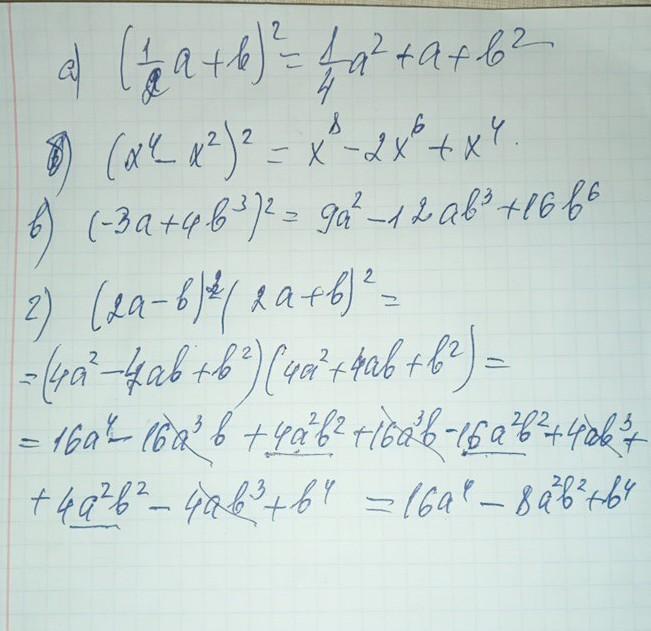 а) (1/2 a + b)² = 1/4 a² + a + b²
б) (x⁴ - x²)² = x⁸ - 2x⁶ + x⁴.
в) (-3a + 4b³)² = 9a² - 12ab³ + 16b⁶
г) (2a - b)² (2a + b)² =
= (4a² - 4ab + b²)(4a² + 4ab + b²) =
= 16a⁴ - 16a³b + 4a²b² + 16a³b - 16a²b² + 4ab³ +
+ 4a²b² - 4ab³ + b⁴ = 16a⁴ - 8a²b² + b⁴